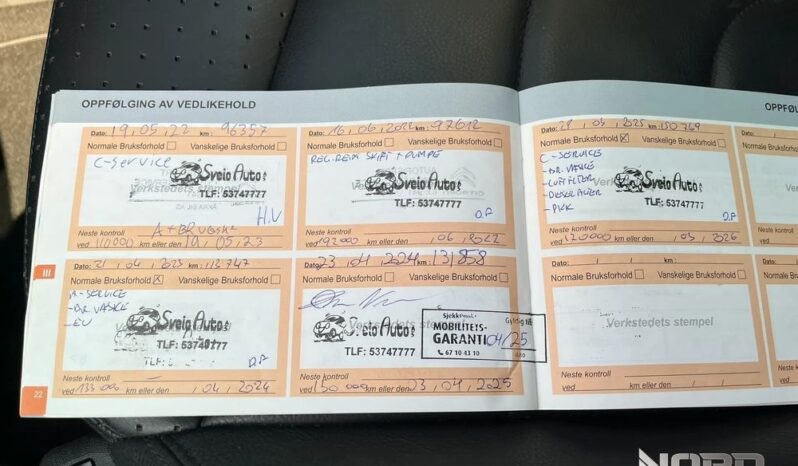 OPPFØLGING AV VEDLIKEHOLD
Dato: 19,05,22 km: 96357
Normale Bruksforhold Vanskelige Bruksforhold
C-service
Sveio Auto
Verkstedets stempel
TLF: 53747777
H.V
Neste kontroll
ved 110000 km eller den 19,05,23
Dato: 16,06,2022 km: 97612
Normale Bruksforhold Vanskelige Bruksforhold
REG.REIM SKIFT + PUMPE
Sveio Auto
TLF: 53747777
Neste kontroll
km eller den ,06,2022
Dato: 21,04,2023 km: 113747
Normale Bruksforhold Vanskelige Bruksforhold
A-SERVICE
-BR.VÆSKE
-EU
Sveio Auto
TLF:
Neste kontroll
ved 133000 km eller den ,04,2024
Dato: 23,04,2024 km: 131858
Normale Bruksforhold Vanskelige Bruksforhold
Sveio Auto
TLF: 53747777
Gyldig til
MOBILITETS-
GARANTI 04/25
67 10 43 10
Neste kontroll
ved 150000 km eller den 23,04,2025
III
22
OPPFØL
km: 150769
Normale Bruksforhold Vanskelige Bruksforhold
C-SERVICE
-BR.VÆSKE
-LUFTFILTER
-PKK
Sveio Auto
Verkstedets stempel
TLF: 53747777
Neste kontroll
km eller den ,03,2026
Dato:
Normale
Neste kontroll
ved
Dato: km:
Normale Bruksforhold Vanskelige Bruksforhold
Verkstedets stempel
Neste kontroll
ved km eller den
Dato:
Normale Bru
Neste kontroll
ved
NORD